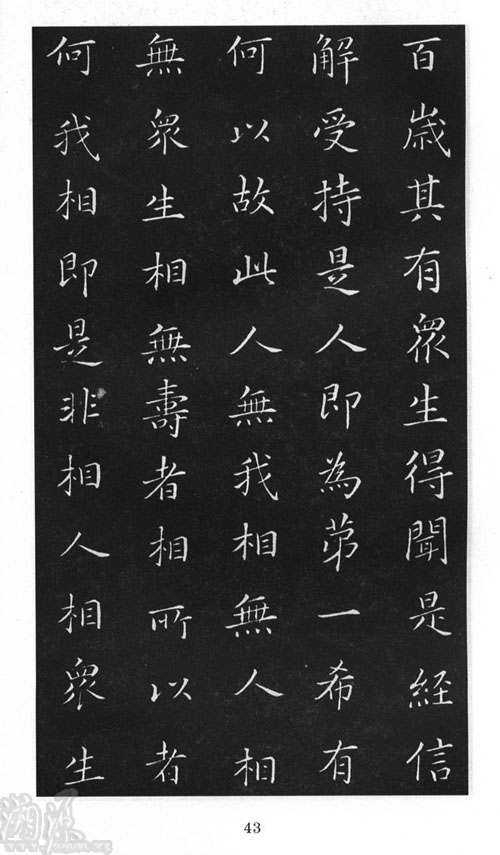 百歲其有眾生得聞是經信
解受持是人即為苐一希有
何以故此人無我相無人相
無眾生相無壽者相所以者
何我相即是非相人相眾生
43